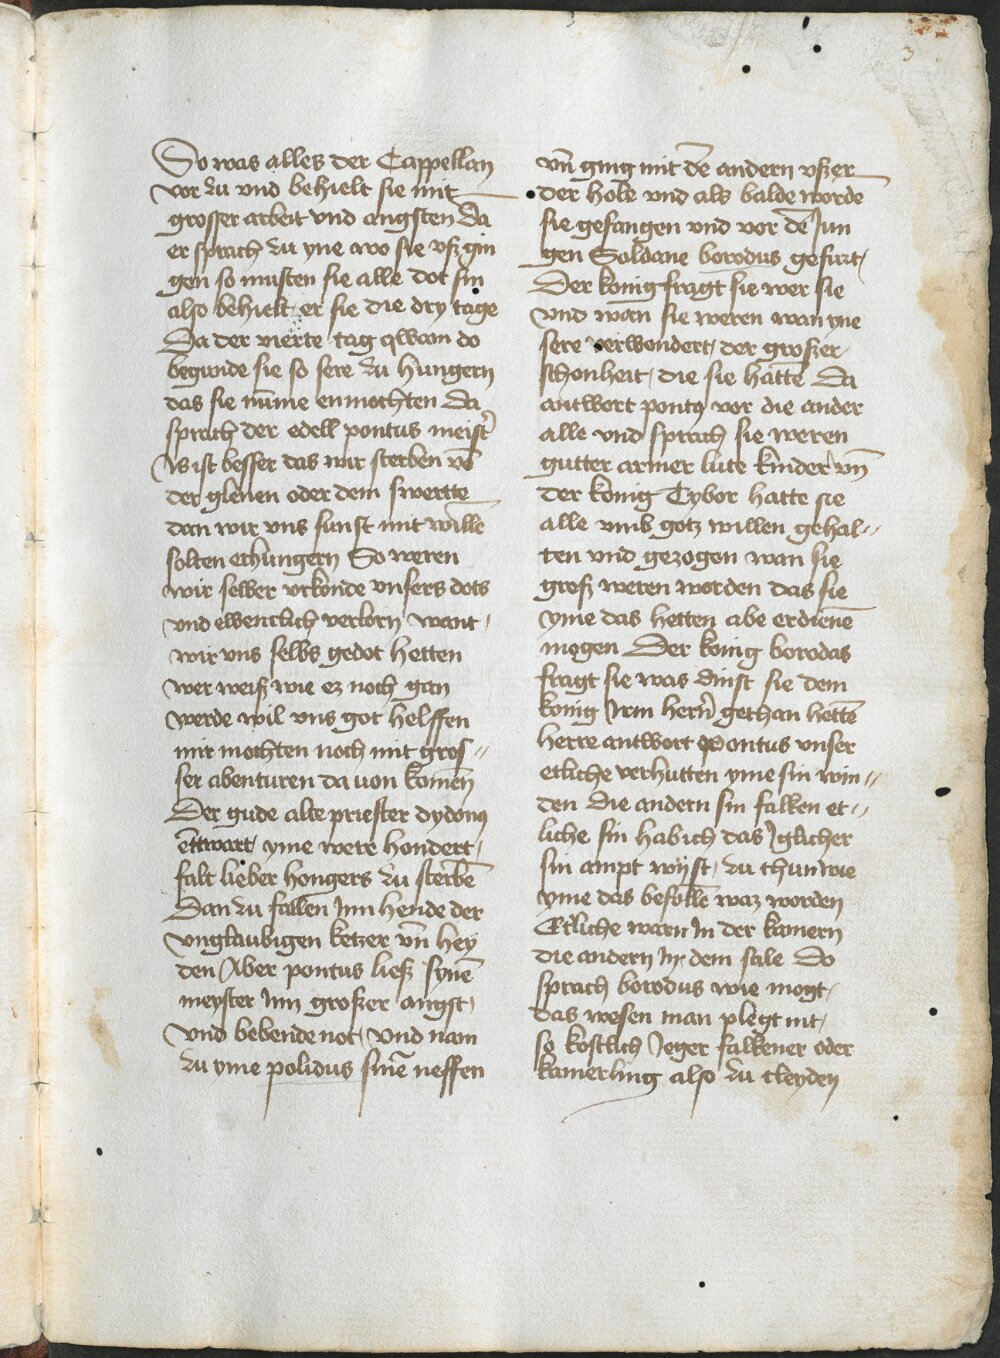 3
So was alles der Cappellan
vor zu vnd behielt sie mit
grosser arbeit vnd angsten Da
er sprach zu yne wo sie vß gin
gen so musten sie alle dot sin
also behielt er sie die dry tage
Da der vierte tag qwam do
begunde sie so sere zu hungern
das sie nūme enmochten Da
sprach der edell pontus meist̄
Is ist besser das wir sterben vō
der glenen oder dem swertte
dan wir vns sunst mit wille
solten erhungern So weren
wir selber vrkunde vnsers dots
vnd ewenclich verlorn want
wir vns selbs gedot hetten
wer weiß wie ez noch gan
werde wil vns got helffen
wir mochten noch mit gros〃
ser abenturen da von komēn
Der gude alte priester dydonꝰ
ēttwart yme were hondert
falt lieber hongers zu sterbē
Dan zu fallen Inn hende der
vnglaubigen ketzer vn̄ hey
den Aber pontus ließ synē
meyster Inn großer angst
vnd bebende not vnd nam
zu yme polidus sinē neffen
vn̄ ging mit dē andern vßer
der hole vnd als balde worde
sie gefangen vnd vor dē Jun
gen Soldane borodus gefurt
Der konig fragt sie wer sie
vnd wan sie weren wan yne
sere verwondert der großer
schonheit die sie hattē Da
antwort pontꝰ vor die ander
alle vnd sprach sie weren
gutter armer lute kinder vn̄
der konig Tybor hatte sie
alle vmb gotz willen gehal〃
ten vnd gezogen wan sie
groß weren worden das sie
yme das hetten abe erdienē
mogen Der konig borodas
fragt sie was dinst sie dem
konig Irm hern̄ gethan hettē
herre antwort Pontus vnser
etliche verhutten yme sin win〃
den die andern sin falken et〃
liche sin habich das Iglicher
sin ampt wyst zu thun wie
yme das befollē waz worden
Etliche warn In der kamern
die andern In dem sale Do
sprach borodus wie mogt
das wesen man plegt nit
so kostlich Jeger falkener oder
kamerling also zu cleyden